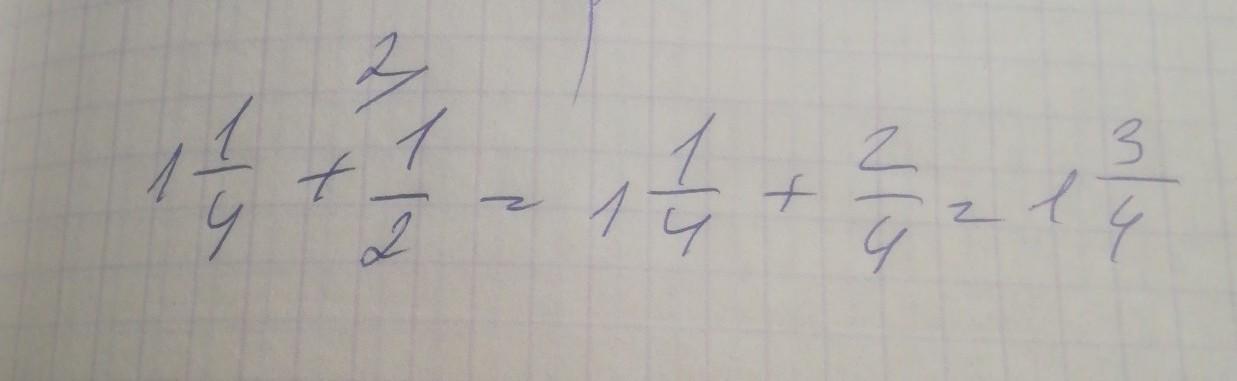 2
1 1/4 + 1/2 = 1 1/4 + 2/4 = 1 3/4